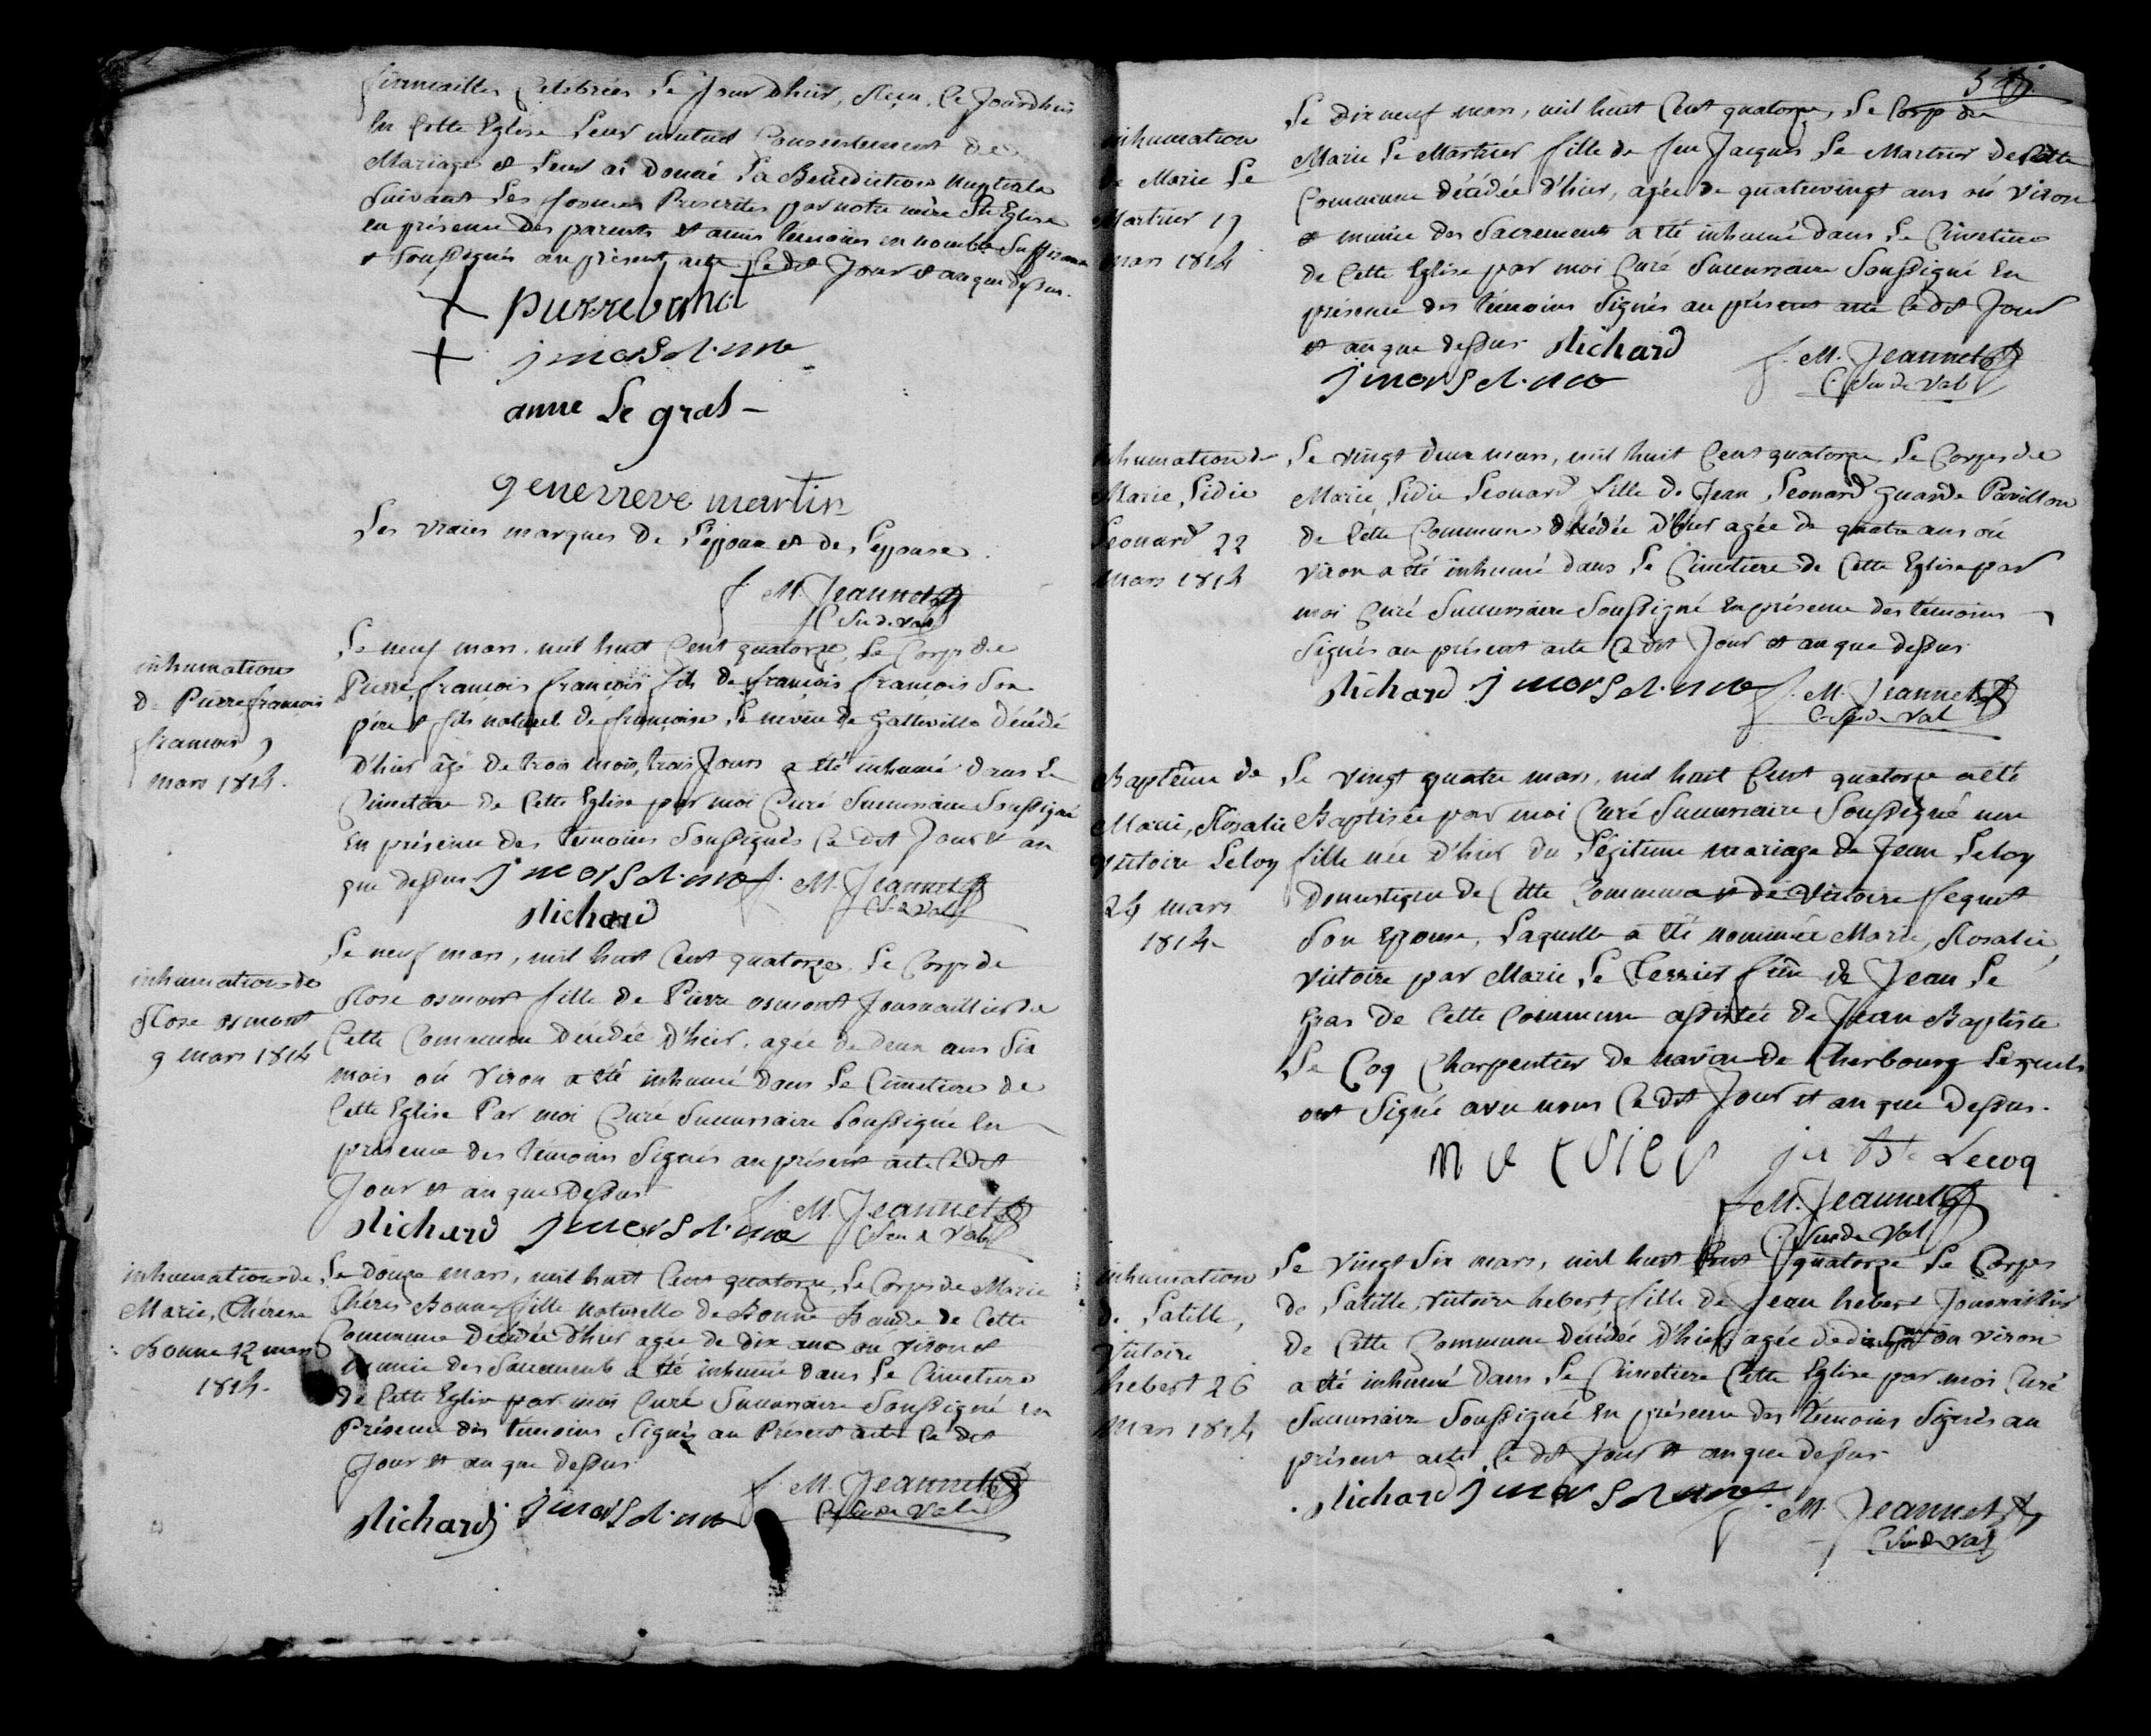 fiancailles Célébrées Le Jour d'hier, Reçu, Ce Jourdhui
En Cette Eglise Leur mutuel Consentement de
Mariage et Leur ai Donné La Bénédiction Nuptiale
Suivant Les formes Prescrites par notre mère Ste Eglise
en présence des parents et amis témoins en nombre Suffisant
et Soussignés au présent acte Ce dit Jour et an que dessus.
anne Le gras
generreve martin
Les vraies marques de L'epoux et de L'epouse.
f. M. Jeannet
C. Su de Val
inhumation
de Pierre françois
françois 9
mars 1814.
Le neuf mars, mil huit Cent quatorze, Le Corps de
Pierre, françois françois fils de françois françois Son
père et fils naturel de françoise de Gatteville Décédé
D'hier âgé de trois mois, trois Jours a été inhumé dans Le
Cimetière de Cette Eglise par moi Curé Succursaire Soussigné
En présence des témoins Soussignés Ce dit Jour et an
que dessus
f. M. Jeannet
C. Su de Val
Richard
inhumation de
Rose osmont
9 mars 1814
Le neuf mars, mil huit Cent quatorze, Le Corps de
Rose osmont fille de Pierre osmont Journaillier de
Cette Commune Décédée D'hier, agée de deux ans Six
mois où viron a été inhumé dans Le Cimetiere de
Cette Eglise Par moi Curé Succursaire Soussigné En
présence des témoins Signés au présent acte Ce dit
Jour et an que Dessus
Richard f. M. Jeannet
C. Su de Val
inhumation de
Marie, Thérese
Bonne 12 mars
1814.
Le douze mars, mil huit Cent quatorze, Le Corps de Marie
Thérès Bonne fille naturelle de Bonne de Cette
Commune Décédée D'hier agée de dix ans où viron et
munie des Sacrements a été inhumé dans Le Cimetiere
de Cette Eglise par moi Curé Succursaire Soussigné en
Présence des témoins Signés au Présent acte Ce dit
Jour et an que dessus
f. M. Jeannet
C. Su de Val
Richard
inhumation
de Marie Le
Martrier 19
mars 1814
Le dix neuf mars, mil huit Cent quatorze, Le Corps de
Marie Le Martrier fille de feu Jacques Le Martrier de Cette
Commune décédée d'hier, agée de quatrevingt ans où viron
et munie des Sacrements a été inhumé dans Le Cimetiere
de Cette Eglise par moi Curé Succursaire Soussigné En
présence des témoins Signés au présent acte Ce dit Jour
et an que dessus Richard f. M. Jeannet
C. Su de Val
inhumation de
Marie, Lidie
Leonard 22
mars 1814
Le vingt deux mars, mil huit Cent quatorze Le Corps de
Marie, Lidie Leonard fille de Jean Leonard Guarde Pavillon
de Cette Commune décédée D'hier agée de quatre ans où
viron a été inhumé dans Le Cimetiere de Cette Eglise par
moi Curé Succursaire Soussigné En présence des témoins
Signés au présent acte Ce dit Jour et an que dessus
Richard f. M. Jeannet
C. Su de Val
Baptême de
Marie, Rosalie
Victoire Leloy
24 mars
1814
Le vingt quatre mars, mil huit Cent quatorze a été
Baptisée par moi Curé Succursaire Soussigné une
fille née D'hier du Légitime mariage de Jean Leloy
Domestique de Cette Commune et de Victoire
Son Epouse, Laquelle a été nommée Marie, Rosalie,
victoire par Marie Le Terrier fme de Jean Le
Gras de Cette Commune assistée de Jean Baptiste
Le Coq Charpentier de navire de Cherbourg Lesquels
ont Signé avec nous Ce dit Jour et an que Dessus.
Lecoq
f. M. Jeannet
C. Su de Val
inhumation
de Latille,
Victoire
hebert 26
mars 1814
Le vingt Six mars, mil huit Cent quatorze Le Corps
de Latille, victoire hebert, fille de Jean hebert Journaillier
de Cette Commune Décédée D'hier agée de où viron
a été inhumé dans Le Cimetiere Cette Eglise par moi Curé
Succursaire Soussigné En présence des témoins Signés au
présent acte Ce dit Jour et an que dessus
Richard f. M. Jeannet
C. Su de Val